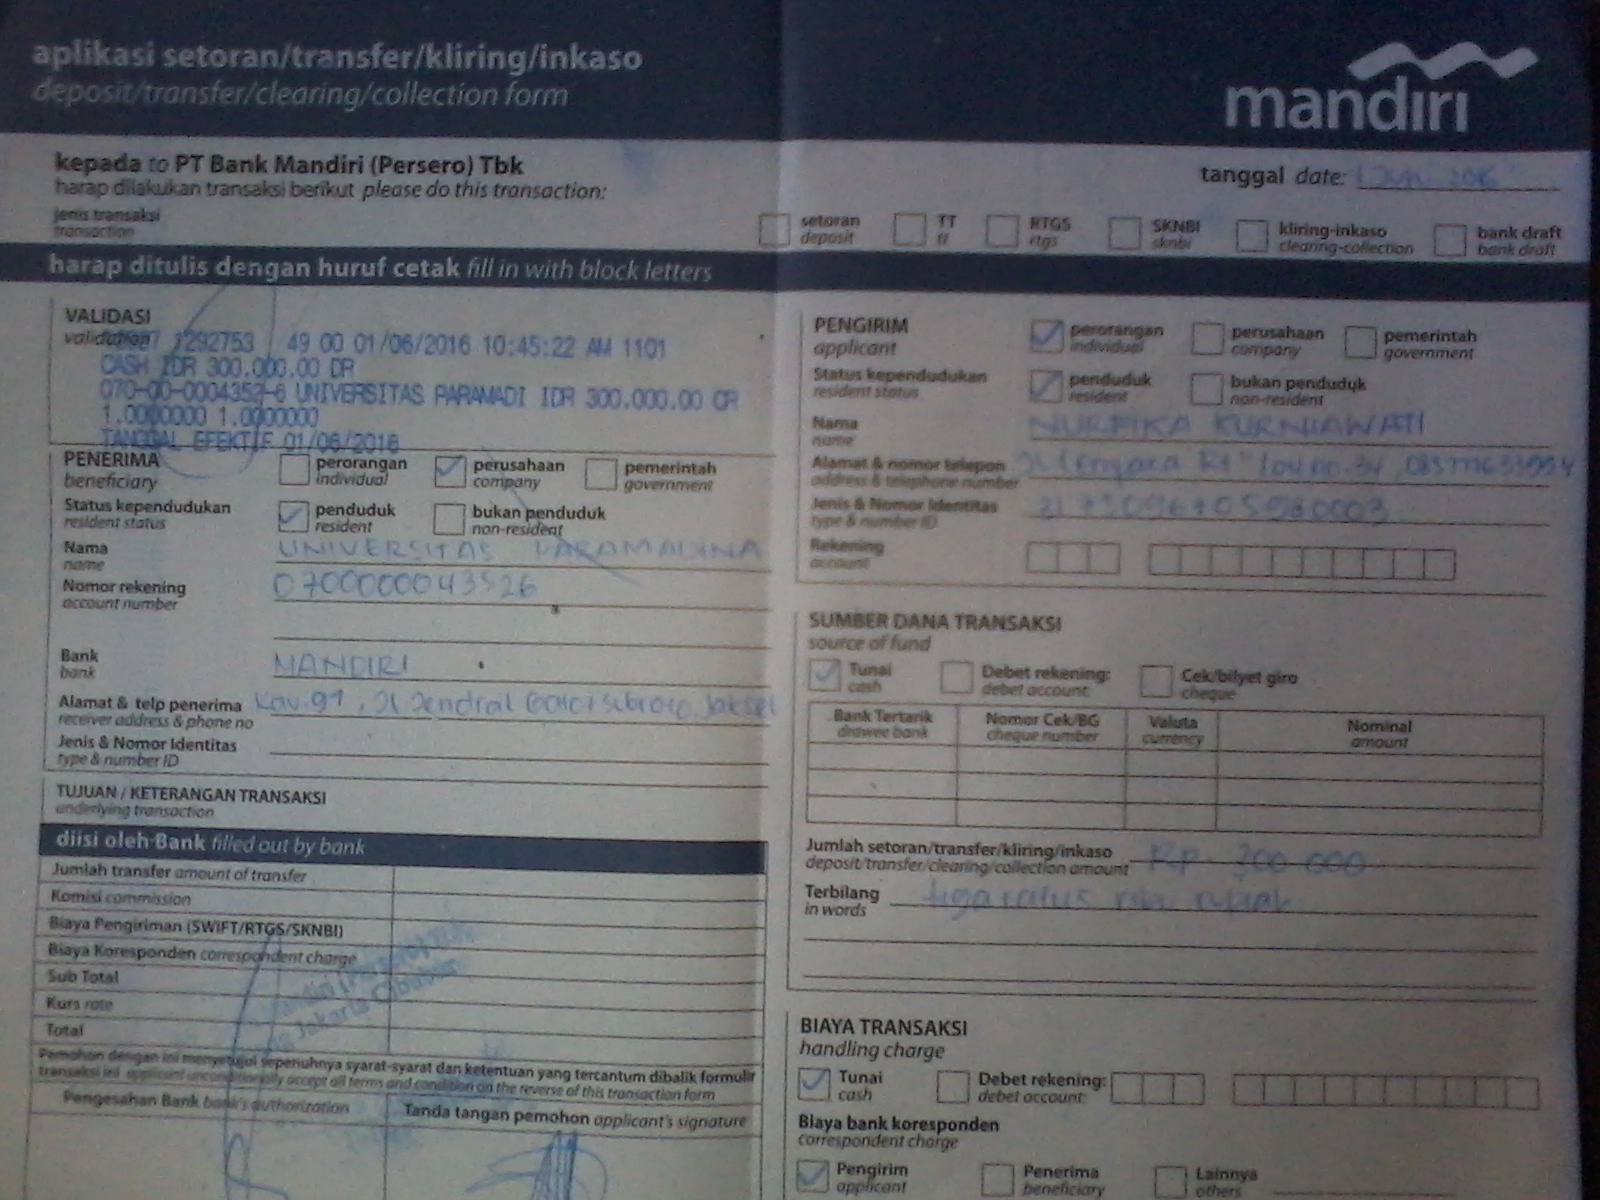 aplikasi setoran/transfer/kliring/inkaso
deposit/transfer/clearing/collection form
mandırı
kepada to PT Bank Mandiri (Persero) Tbk
harap dilakukan transaksi berikut please do this transaction:
tanggal date:
jenis transaksi
transaction
setoran
deposit
TT
tt
RTGS
rtgs
SKNBI
sknbi
kliring-inkaso
clearing-collection
bank draft
bank draft
harap ditulis dengan huruf cetak fill in with block letters
VALIDASI
validation
1292753 49 00 01/06/2016 10:45:22 AM 1101
CASH IDR 300.000.00 DR
070-00-0004352-6 UNIVERSITAS PARAMADI IDR 300.000.00 CR
1.0000000 1.0000000
TANGGAL EFEKTIF 01/06/2016
PENERIMA
beneficiary
perorangan
individual
perusahaan
company
pemerintah
government
Status kependudukan
resident status
penduduk
resident
bukan penduduk
non-resident
Nama UNIVERSITAS PARAMADINA
name
Nomor rekening 0700000043526
account number
Bank MANDIRI
bank
Alamat & telp penerima Kav. 97, Jl Jendral Gatot Subroto, Jaksel
receiver address & phone no
Jenis & Nomor Identitas
type & number ID
TUJUAN / KETERANGAN TRANSAKSI
underlying transaction
diisi oleh Bank filled out by bank
Jumlah transfer amount of transfer
Komisi commission
Biaya Pengiriman (SWIFT/RTGS/SKNBI)
Biaya Koresponden correspondent charge
Sub Total
Kurs rate
Total
Jakarta Cibubur
Pemohon dengan ini menyetujui sepenuhnya syarat-syarat dan ketentuan yang tercantum dibalik formulir
transaksi ini applicant unconditionally accept all terms and condition on the reverse of this transaction form
Pengesahan Bank bank's authorization
Tanda tangan pemohon applicant's signature
PENGIRIM
applicant
perorangan
individual
perusahaan
company
pemerintah
government
Status kependudukan
resident status
penduduk
resident
bukan penduduk
non-resident
Nama NURFIKA KURNIAWATI
name
Alamat & nomor telepon
address & telephone number
Jenis & Nomor Identitas
type & number ID
Rekening
account
SUMBER DANA TRANSAKSI
source of fund
Tunai
cash
Debet rekening:
debet account:
Cek/bilyet giro
cheque
Bank Tertarik
drawee bank
Nomor Cek/BG
cheque number
Valuta
currency
Nominal
amount
Jumlah setoran/transfer/kliring/inkaso Rp 300 000
deposit/transfer/clearing/collection amount
Terbilang tiga ratus ribu rupiah
in words
BIAYA TRANSAKSI
handling charge
Tunai
cash
Debet rekening:
debet account:
Biaya bank koresponden
correspondent charge
Pengirim
applicant
Penerima
beneficiary
Lainnya
others